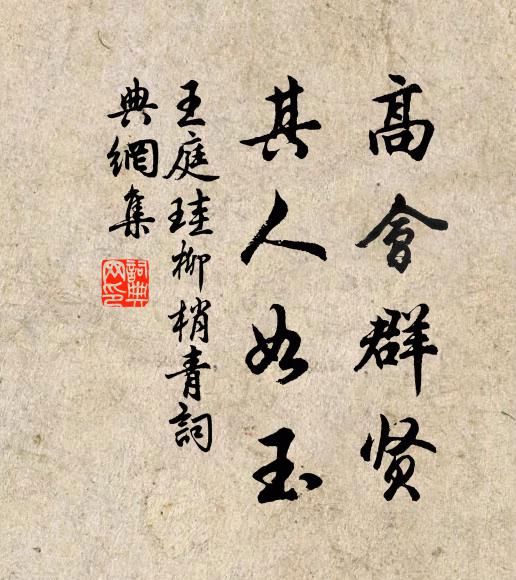 高會群贤
其人如玉
王庭珪柳梢青詞
典網集
詞典網印